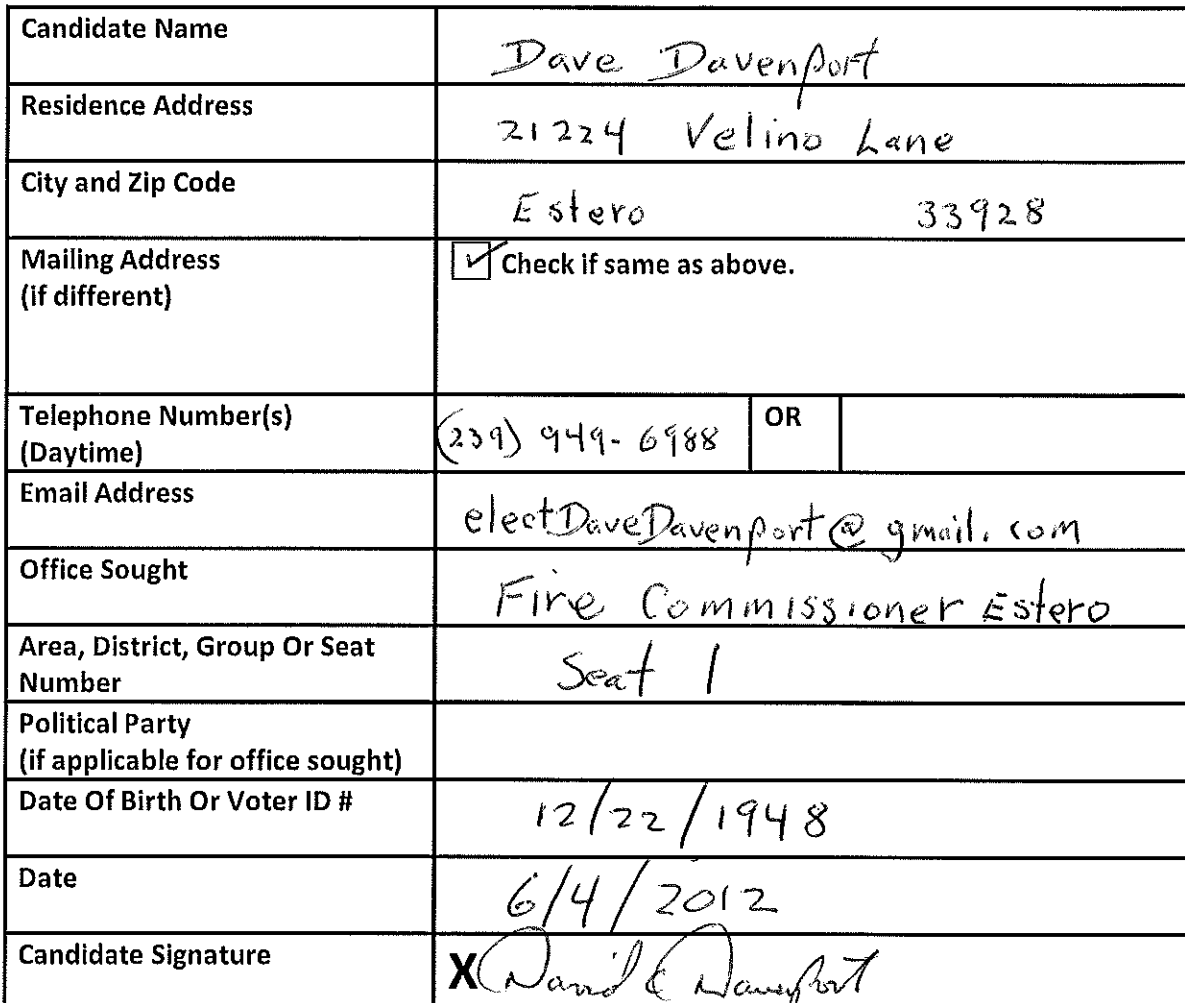 Candidate Name Dave Davenport
Residence Address 21224 Velino Lane
City and Zip Code Estero 33928
Mailing Address ✓ Check if same as above.
(if different)
Telephone Number(s) (239) 949-6988 OR
(Daytime)
Email Address electDaveDavenport@gmail.com
Office Sought Fire Commissioner Estero
Area, District, Group Or Seat Seat 1
Number
Political Party
(if applicable for office sought)
Date Of Birth Or Voter ID # 12/22/1948
Date 6/4/2012
Candidate Signature X David E Davenport